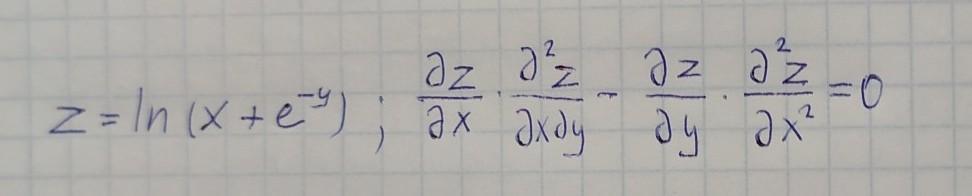 z = ln (x + e^{-y}) ; ∂z/∂x · ∂²z/∂x∂y − ∂z/∂y · ∂²z/∂x² = 0